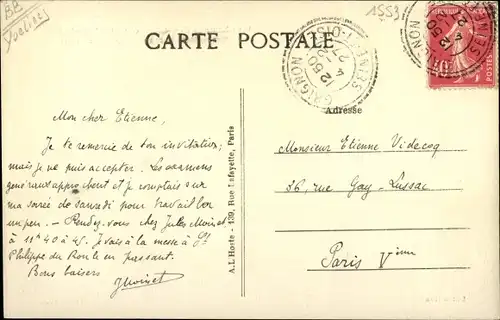 BB
Yvelines
1553
CARTE POSTALE
GRIGNON
SEINE-ET-OISE
12 50
27 -2
GNON
POSTES
Adresse
Mon cher Etienne,
Je te remercie de ton invitation,
mais je ne puis accepter. Les examens
généraux approchent et je comptais sur
ma soirée de samedi pour travailler
un peu. - Rendez-vous chez Jules Moinet
à 11h 40 à 45. Je vais à la messe à St
Philippe du Roule en passant.
Bons baisers
JMoinet
A.L Horte - 139, Rue Lafayette, Paris
Monsieur Etienne Videcoq
36, rue Gay-Lussac
Paris V